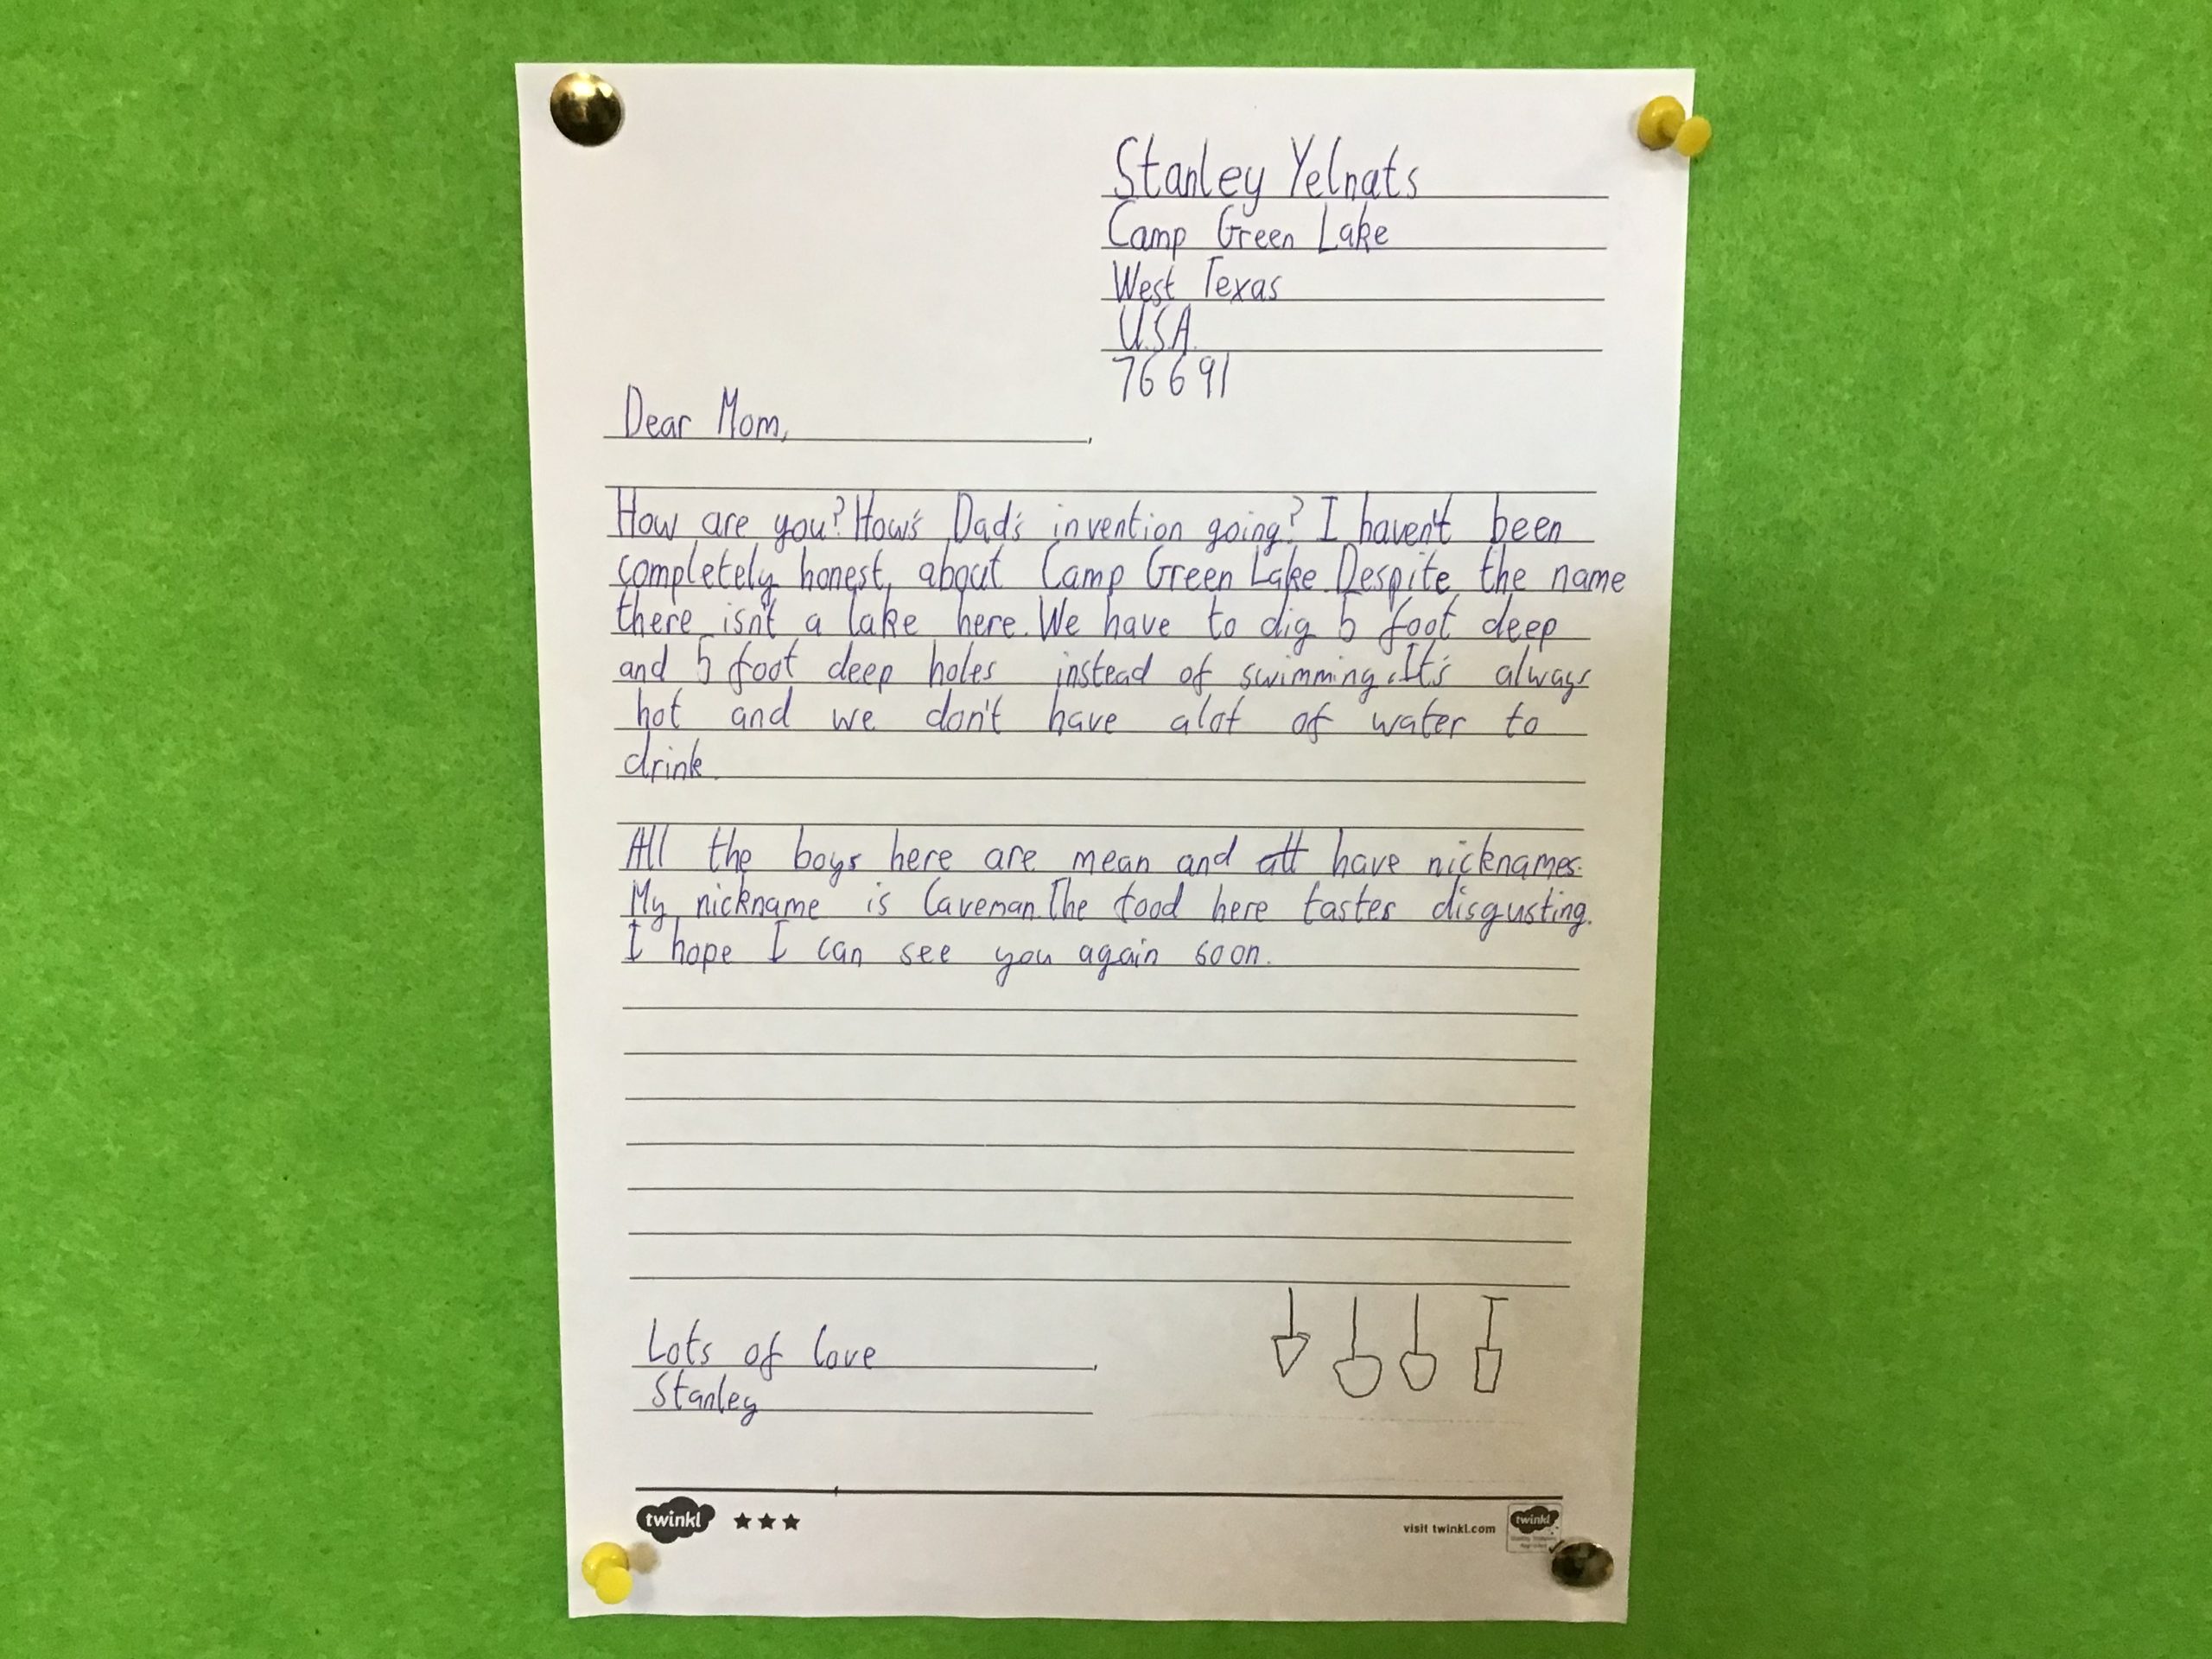 Stanley Yelnats
Camp Green Lake
West Texas
U.S.A.
76691
Dear Mom,
How are you? How's Dad's invention going? I haven't been
completely honest, about Camp Green Lake. Despite the name
there isn't a lake here. We have to dig 5 foot deep
and 5 foot deep holes instead of swimming. It's always
hot and we don't have alot of water to
drink.
All the boys here are mean and all have nicknames.
My nickname is Caveman. The food here tastes disgusting.
I hope I can see you again soon.
Lots of love
Stanley
twinkl
visit twinkl.com
twinkl